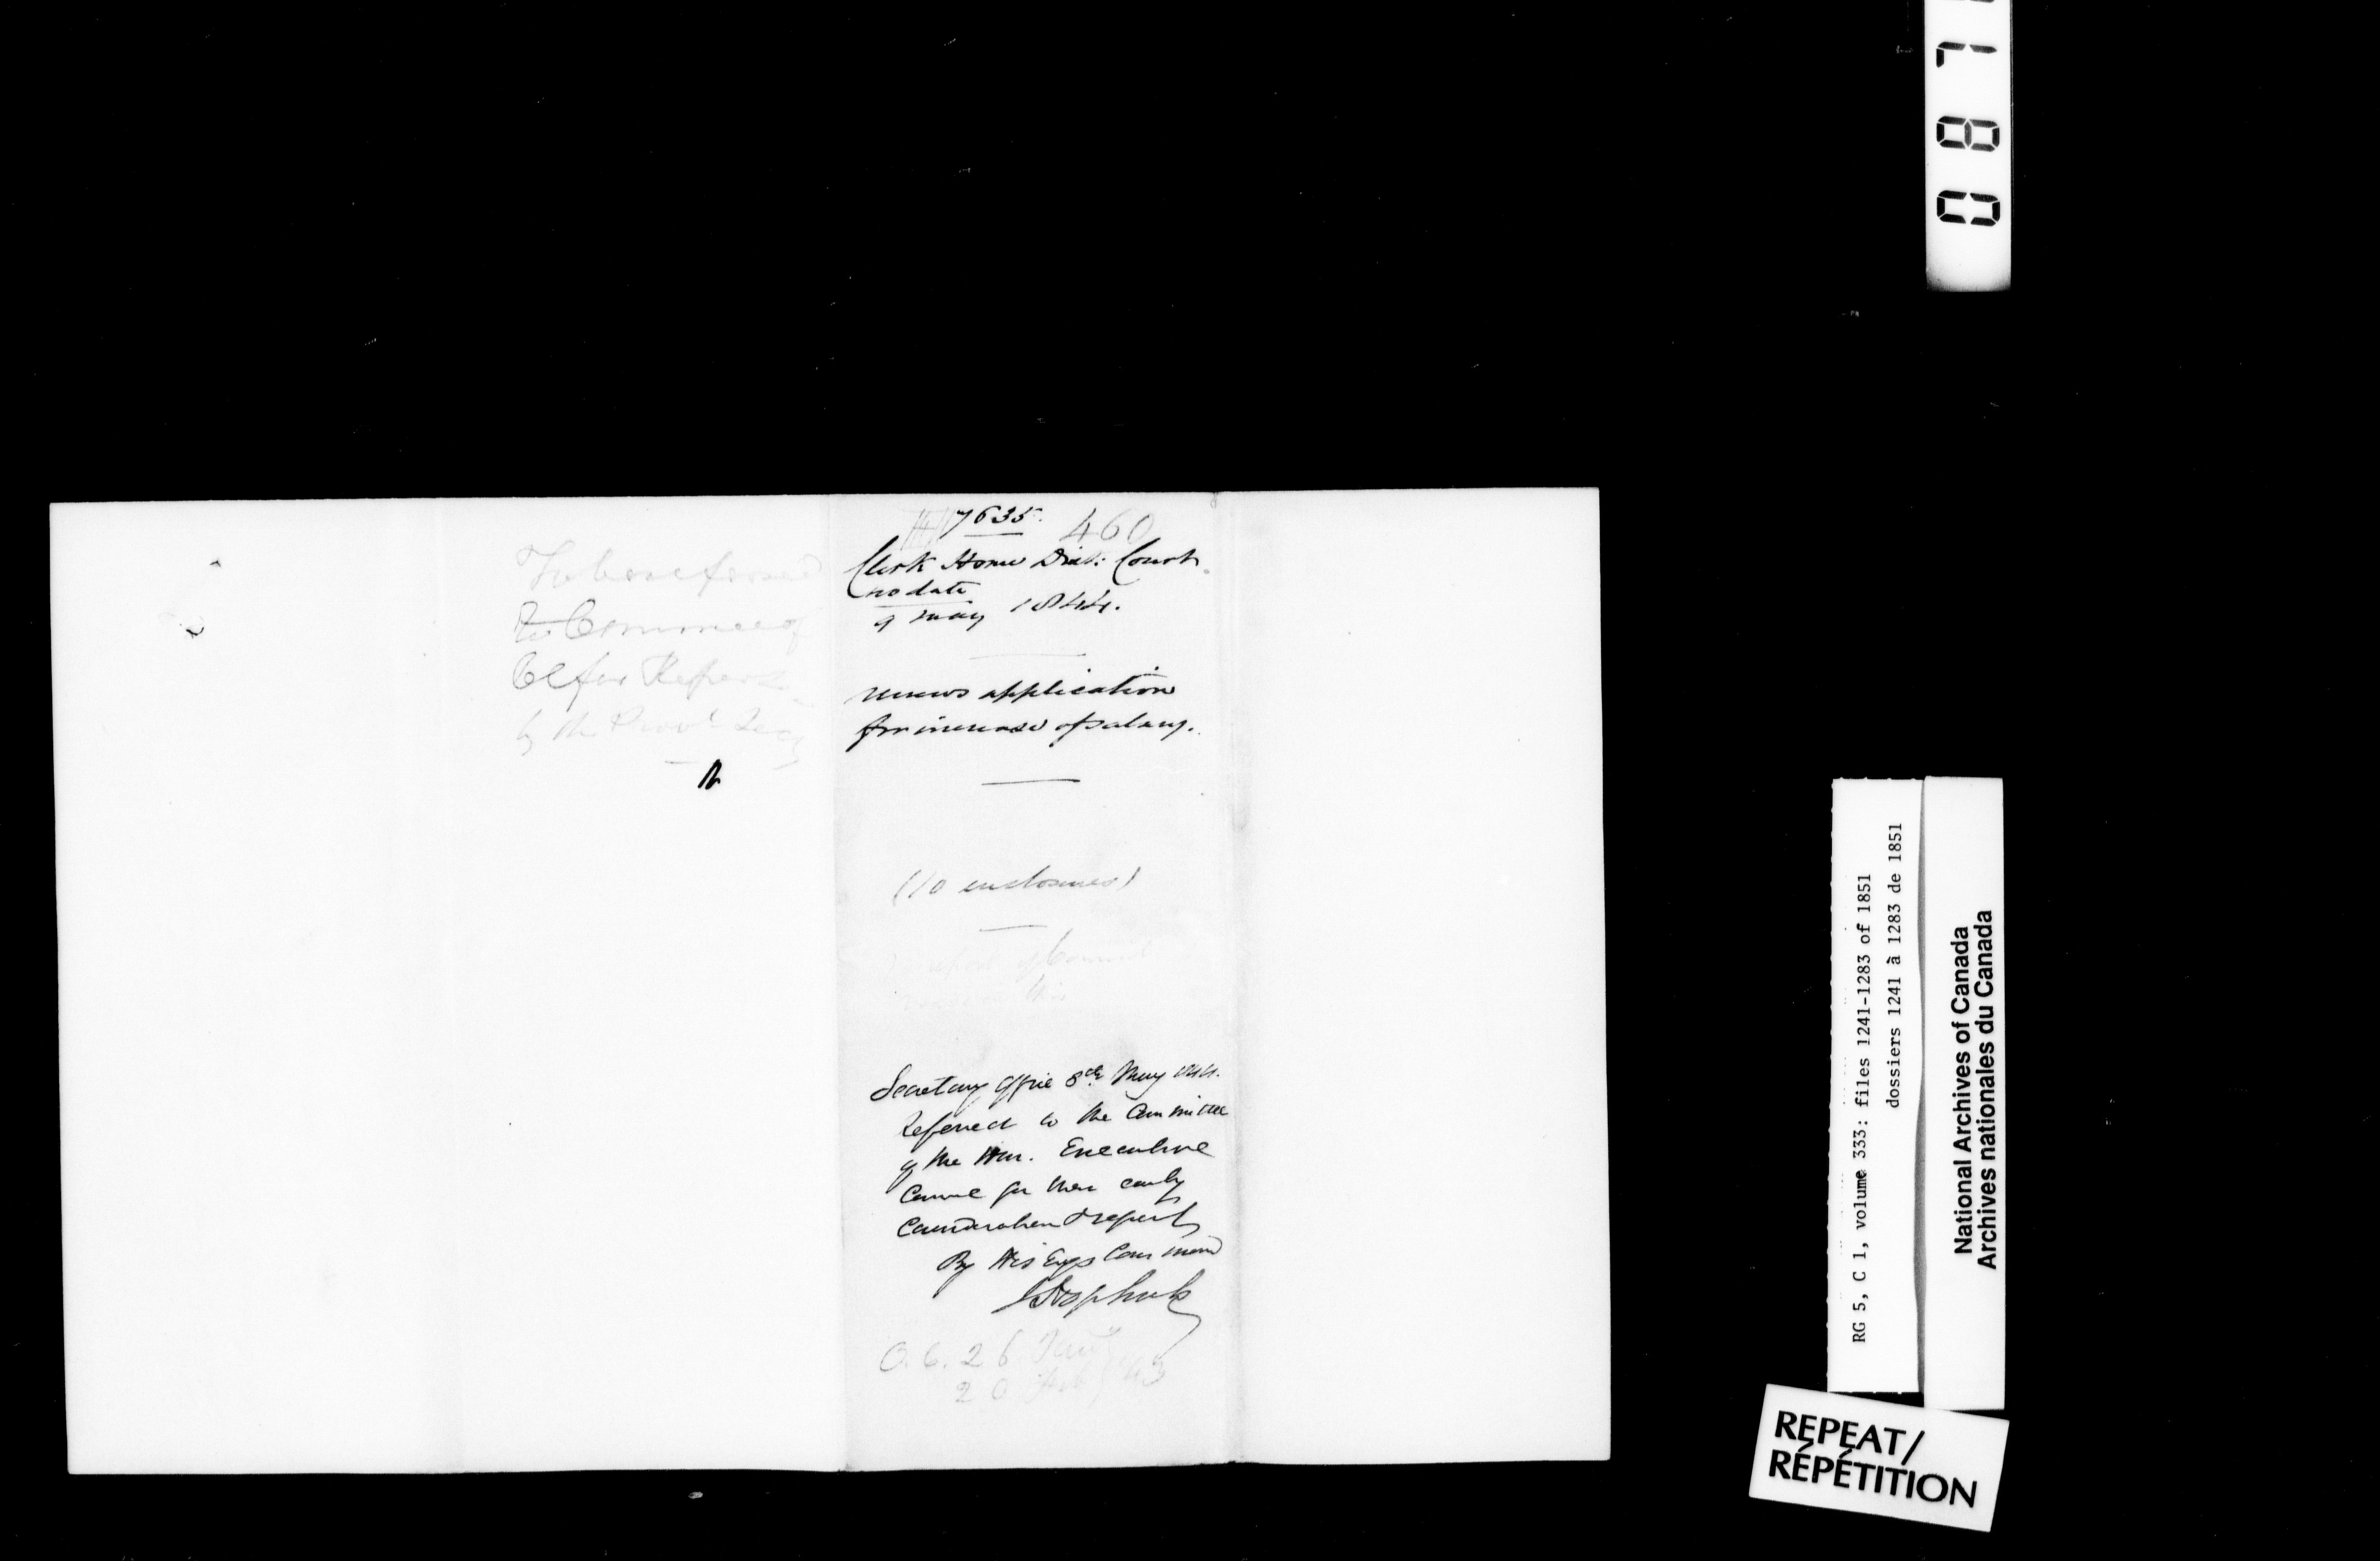 To be referred
to Committee of
EC for Report
by the Provl Secy
7635. 460
Clerk Home Dist: Court.
no date
9 May 1844.
renews application
for increase of salary.
(10 enclosures)
report of Council
this
Secretary Office 8th May 1844.
Referred to the Committee
of the Hon. Executive
Council for their early
Consideration & report
By His Excys Command
20 Feby 43
0 8 7
RG 5, C 1, volume 333: files 1241-1283 of 1851
dossiers 1241 à 1283 de 1851
National Archives of Canada
Archives nationales du Canada
REPEAT/
RÉPÉTITION